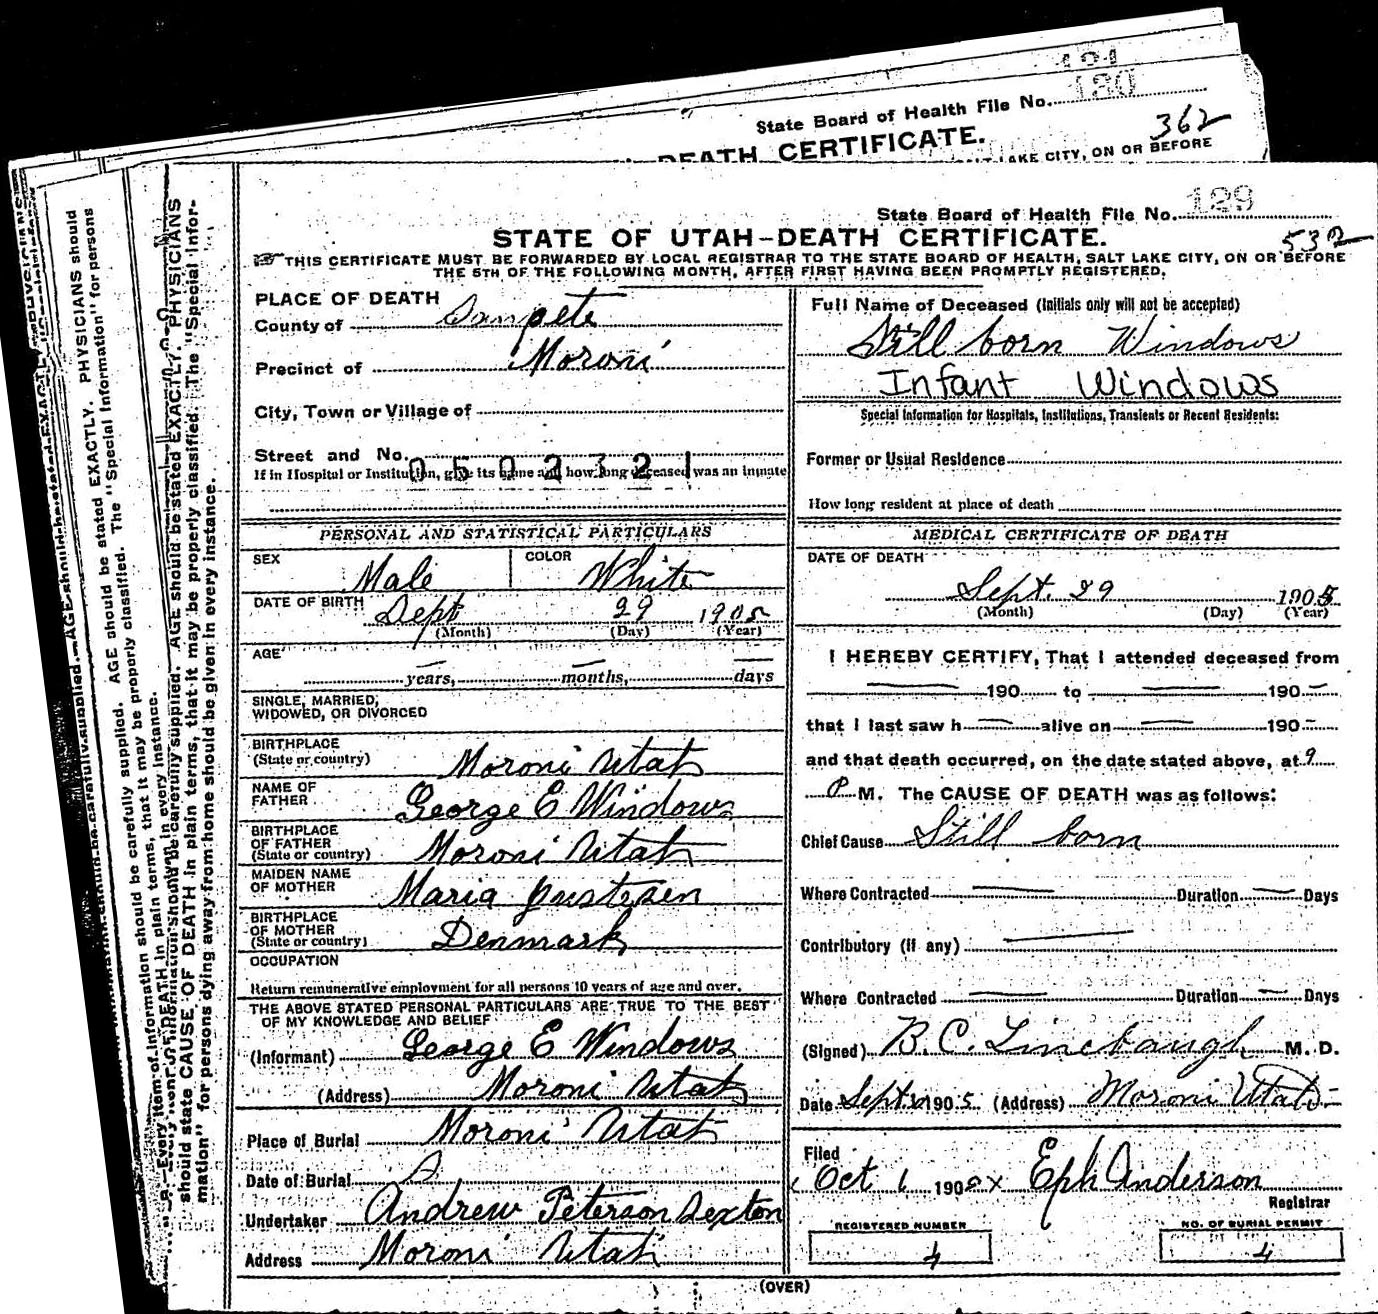 121
180
State Board of Health File No.
362
DEATH CERTIFICATE.
LAKE CITY, ON OR BEFORE
State Board of Health File No. 129
STATE OF UTAH-DEATH CERTIFICATE.
532
THIS CERTIFICATE MUST BE FORWARDED BY LOCAL REGISTRAR TO THE STATE BOARD OF HEALTH, SALT LAKE CITY, ON OR BEFORE
THE 5TH OF THE FOLLOWING MONTH, AFTER FIRST HAVING BEEN PROMPTLY REGISTERED.
PLACE OF DEATH
County of Sanpete
Precinct of Moroni
City, Town or Village of
Street and No.
If in Hospital or Institution, give its name and how long deceased was an inmate
0502321
Full Name of Deceased (Initials only will not be accepted)
Still born Windows
Infant Windows
Special Information for Hospitals, Institutions, Transients or Recent Residents:
Former or Usual Residence
How long resident at place of death
PERSONAL AND STATISTICAL PARTICULARS
SEX Male COLOR White
DATE OF BIRTH Sept 29 1905
(Month) (Day) (Year)
AGE
— years, — months, — days
SINGLE, MARRIED,
WIDOWED, OR DIVORCED
BIRTHPLACE
(State or country) Moroni Utah
NAME OF
FATHER George E Windows
BIRTHPLACE
OF FATHER
(State or country) Moroni Utah
MAIDEN NAME
OF MOTHER Maria Justesen
BIRTHPLACE
OF MOTHER
(State or country) Denmark
OCCUPATION
Return remunerative employment for all persons 10 years of age and over.
THE ABOVE STATED PERSONAL PARTICULARS ARE TRUE TO THE BEST
OF MY KNOWLEDGE AND BELIEF
(Informant) George E Windows
(Address) Moroni Utah
Place of Burial Moroni Utah
Date of Burial
Undertaker Andrew Peterson Sexton
Address Moroni Utah
MEDICAL CERTIFICATE OF DEATH
DATE OF DEATH
Sept. 29 1905
(Month) (Day) (Year)
I HEREBY CERTIFY, That I attended deceased from
— 190 to — 190 —
that I last saw h — alive on — 190 —
and that death occurred, on the date stated above, at 9
P M. The CAUSE OF DEATH was as follows:
Chief Cause Still born
Where Contracted — Duration — Days
Contributory (if any) —
Where Contracted — Duration — Days
(Signed) B. C. Linebaugh M. D.
Date Sept 1905 (Address) Moroni Utah
Filed
Oct 1 190 x Eph Anderson
Registrar
REGISTERED NUMBER
4
NO. OF BURIAL PERMIT
4
(OVER)
AGE should be stated EXACTLY. PHYSICIANS should
Every item of information should be carefully supplied. AGE should be stated EXACTLY. PHYSICIANS
should state CAUSE OF DEATH in plain terms, that it may be properly classified. The "Special Infor-
mation" for persons dying away from home should be given in every instance.